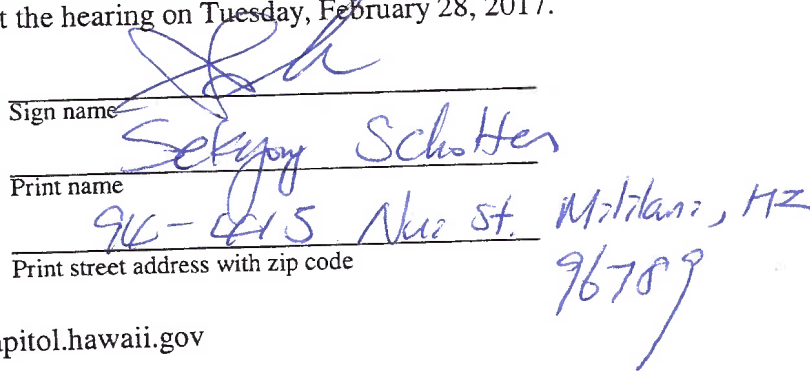 t the hearing on Tuesday, February 28, 2017.
Sign name
Sekyong Schotten
Print name
94-445 Nui St. Mililani, HI
96789
Print street address with zip code
pitol.hawaii.gov